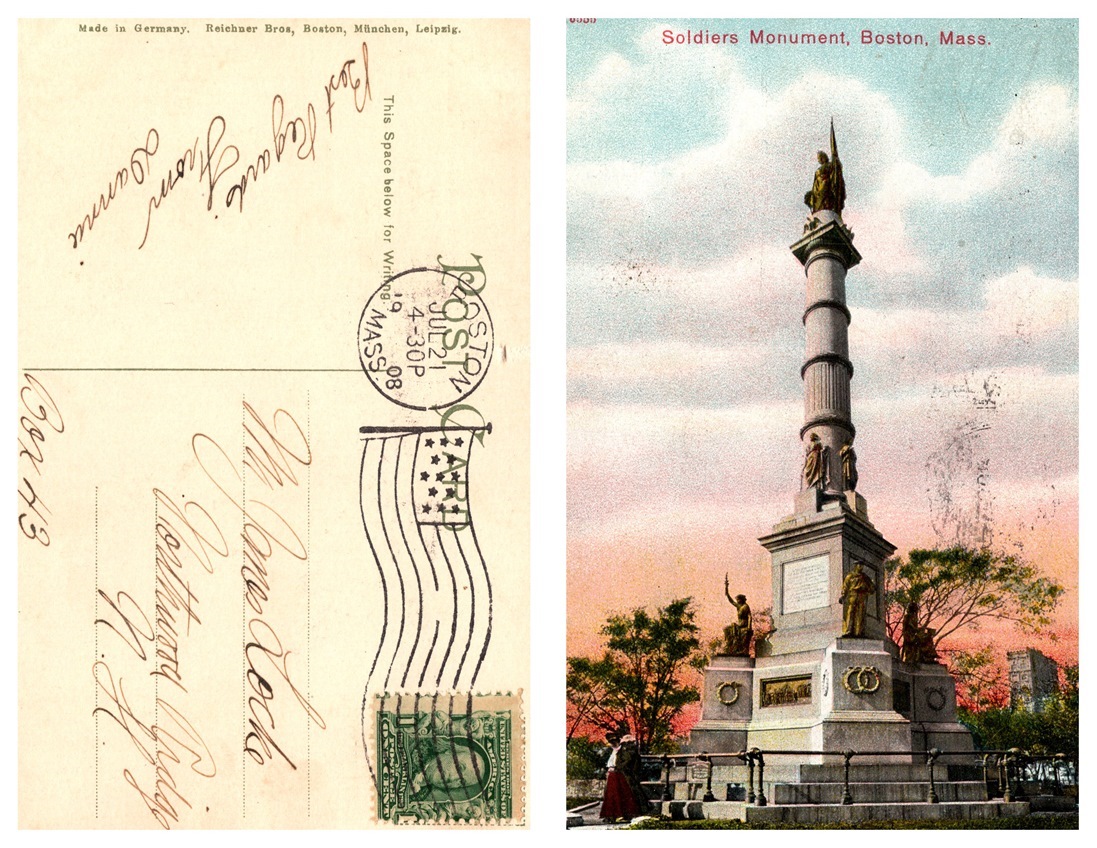 Made in Germany. Reichner Bros, Boston, München, Leipzig.
This Space below for Writing.
POST CARD
Best Regards
From
BOSTON
JUL 21
4-30P
'9 08
MASS.
Mr Amos Locke
Northwood Ridge
N. H.
Box 43
6555
Soldiers Monument, Boston, Mass.